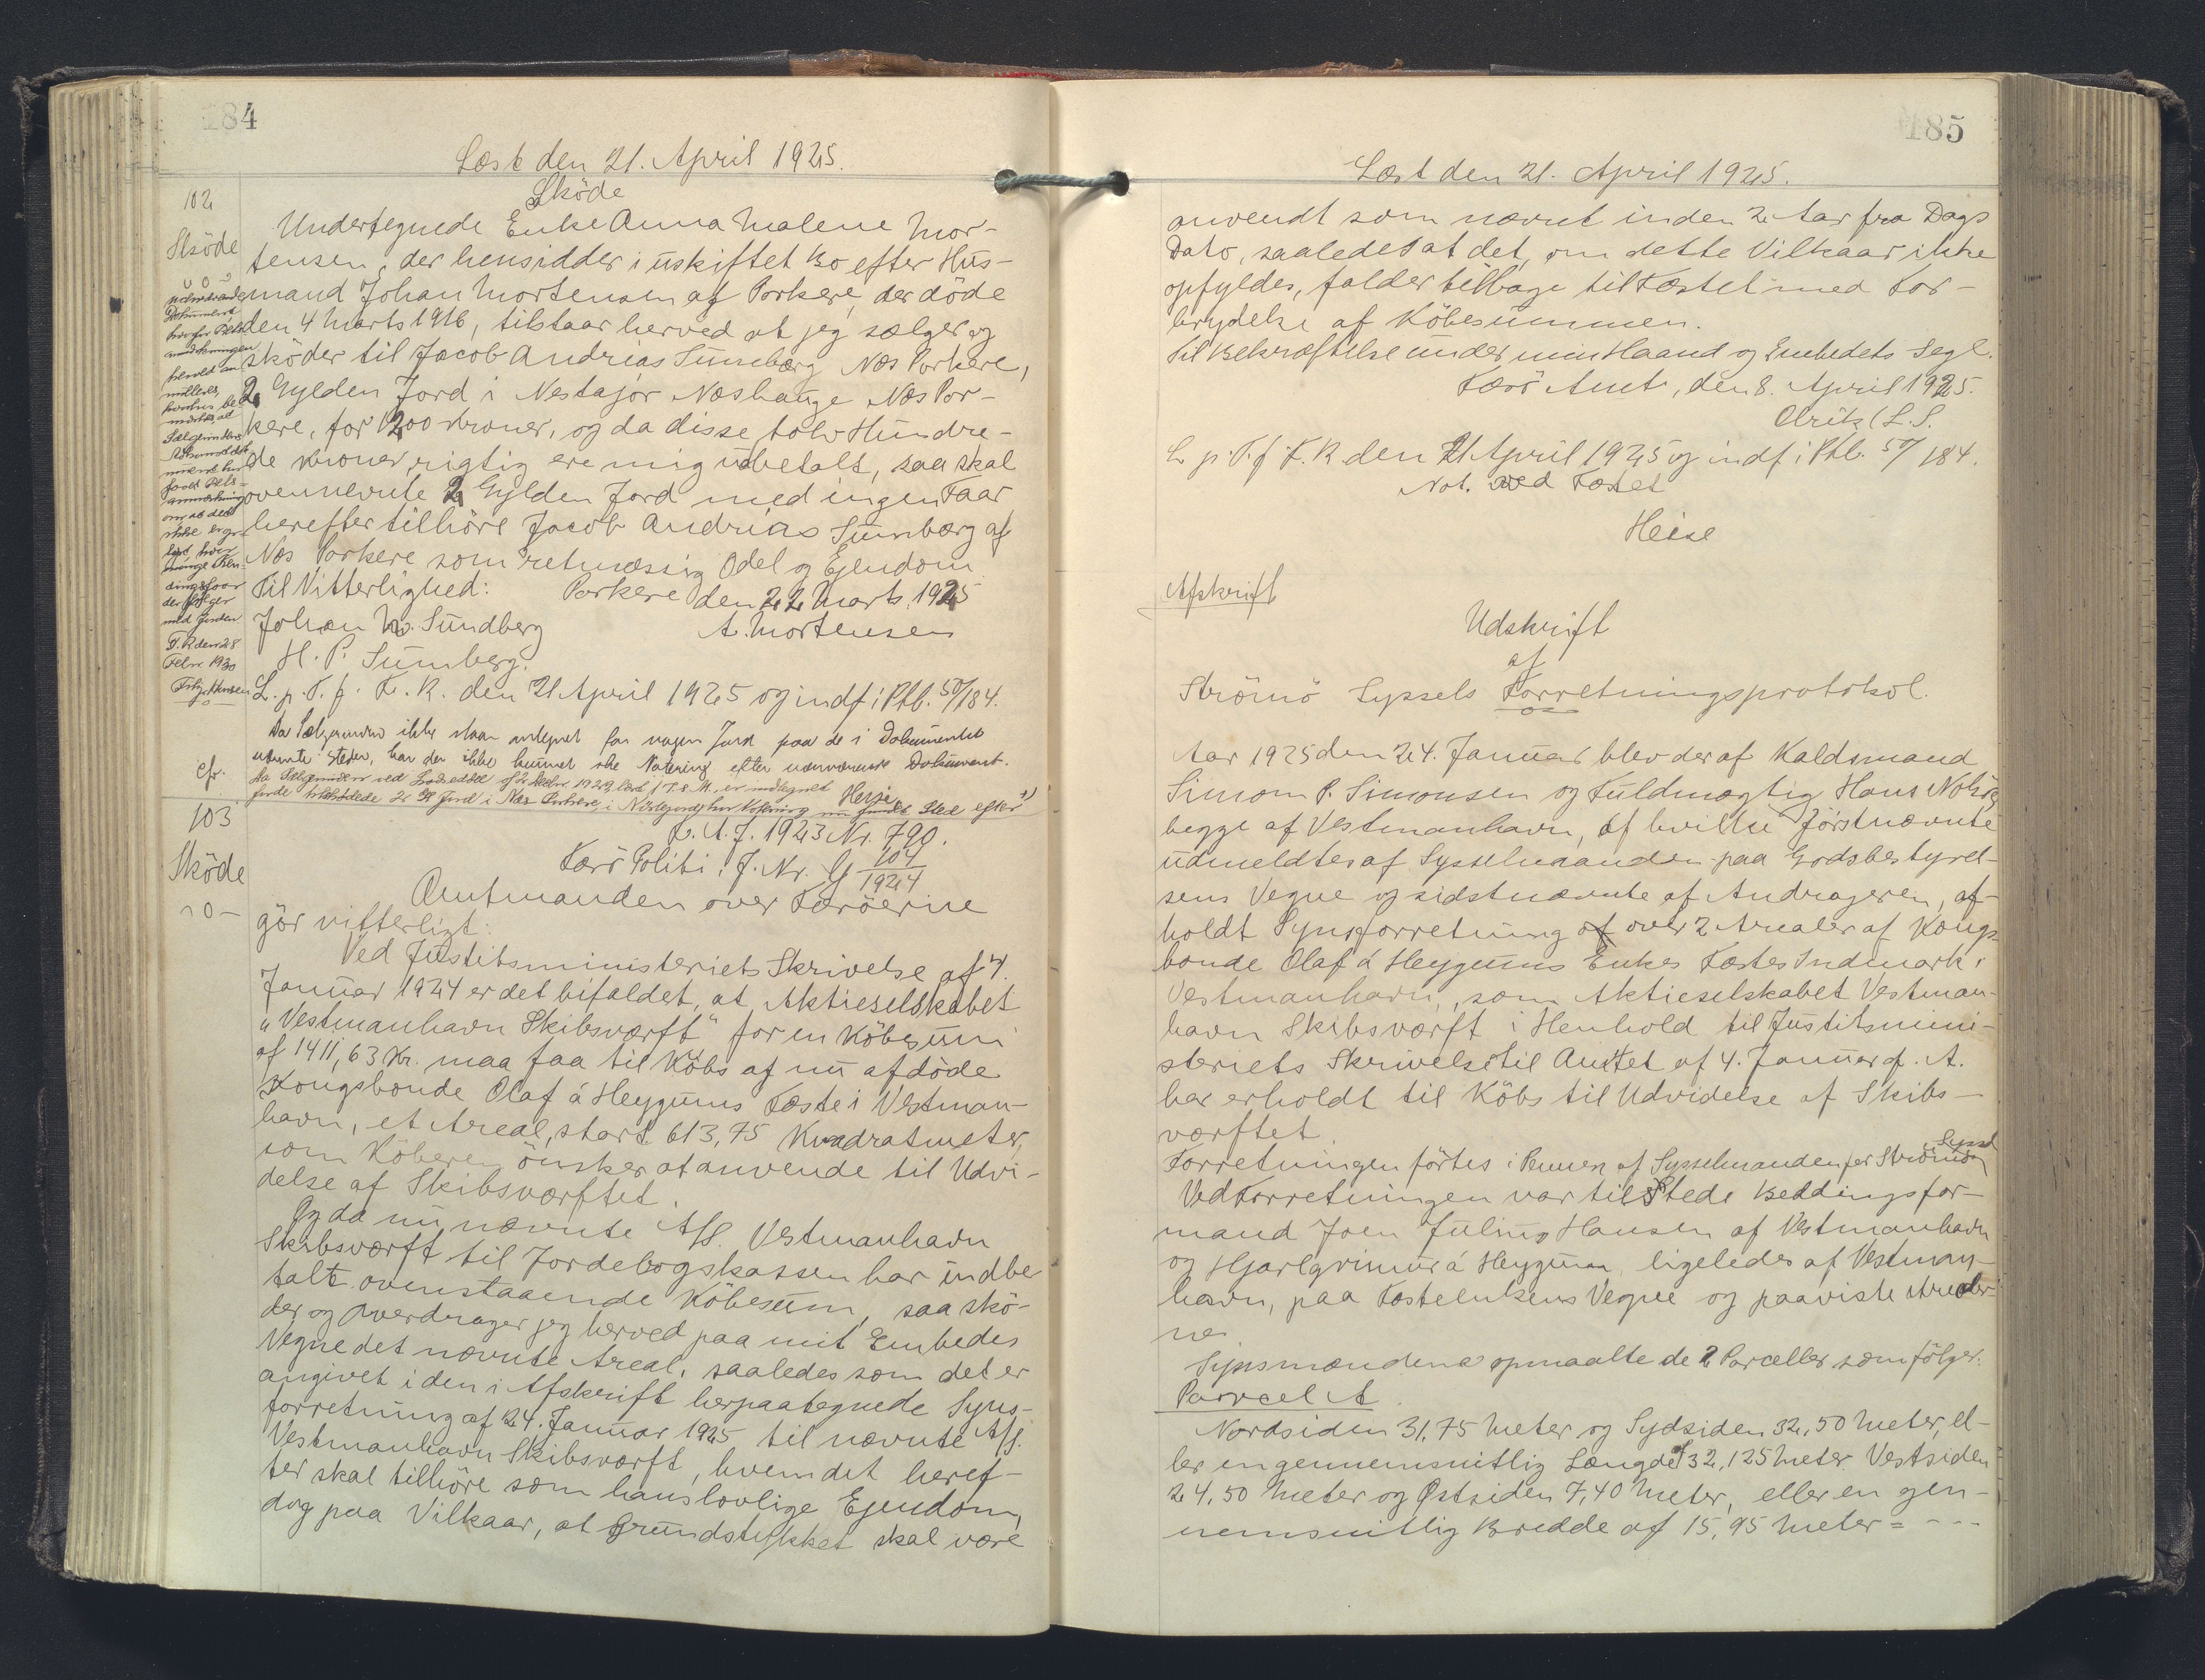 184
Læst den 21. April 1925.
102
Sköde
Sköde
Undertegnede Enke Anna Malene Mor-
tensen, der hensidder i uskiftet Bo efter Hus-
mand Johan Mortensen af Porkere, der döde
den 4 Marts 1916, tilstaar herved at jeg sælger og
sköder til Jacob Andrias Sumberg Nes Porkere,
2 Gylden Jord i Nestajør Neshauge Nes Por-
kere, for 1200 Kroner, og da disse tolv Hundre-
de Kroner rigtig ere mig udbetalt, saa skal
ovennevnte 2 Gylden Jord med ingen Faar
herefter tilhöre Jacob Andrias Sumberg af
Nes Porkere som retmæssig Odel og Ejendom
Til Vitterlighed: Porkere den 22 Marts 1925
Johan M. Sundberg A. Mortensen
H. P. Sumberg.
L. p. T. f. F. R. den 21 April 1925 og indf i Ptb. 50/184.
Da Sælgerinden ikke staar antegnet for nogen Jord paa de i Dokumentet
nævnte Steder, har der ikke kunnet ske Notering efter nærværende Dokument.
Heise
nærværende
Dokument
Sælgerindens
der følger
med Jorden
F. R. den 28
Febr. 1930
cfr.
103
Sköde
F. A. J. 1923 Nr. 790.
Færö Politi J. Nr. G 104/1924
Amtmanden over Færöerne
gör vitterligt:
Ved Justitsministeriets Skrivelse af 4.
Januar 1924 er det bifaldet, at Aktieselskabet
"Vestmanhavn Skibsværft" for en Köbesum
af 1411,63 Kr. maa faa til Köbs af nu afdöde
Kongsbonde Olaf á Heygums Fæste i Vestman-
havn, et Areal, stort 613,75 Kvadratmeter,
som Köberen önsker at anvende til Udvi-
delse af Skibsværftet.
Og da nu nævnte A/S. Vestmanhavn
Skibsværft til Jordebogskassen har indbe
talt ovenstaaende Köbesum, saa skö-
der og overdrager jeg herved paa mit Embedes
Vegne det nævnte Areal, saaledes som det er
angivet i den i Afskrift herpaategnede Syns-
forretning af 24. Januar 1925 til nævnte A/S.
Vestmanhavn Skibsværft, hvem det heref-
ter skal tilhöre som hans lovlige Ejendom,
dog paa Vilkaar, at Grundstykket skal være
185
Læst den 21. April 1925.
anvendt som nævnt inden 2 Aar fra Dags
Dato, saaledes at det, om dette Vilkaar ikke
opfyldes, falder tilbage til Fæstet med For-
brydelse af Köbesummen.
Til Bekræftelse under min Haand og Embedets Segl.
Færö Amt, den 8. April 1925.
Ulrik (L. S.
L. p. T. f. F. R. den 21 April 1925 og indf i Ptb. 50/184.
Not. ved Fæstet
Heise
Afskrift
Udskrift
af
Strömö Syssels Forretningsprotokol.
Aar 1925 den 24. Januar blev der af Kaldsmand
Simon P. Simonsen og Fuldmægtig Hans Nolsöe
begge af Vestmanhavn, af hvilke förstnævnte
udmeldtes af Sysselmanden paa Godsbestyrel-
sens Vegne og sidstnævnte af Andrageren, af-
holdt Synsforretning af over 2 Arealer af Kongs-
bonde Olaf á Heygums Enkes Fæstes Indmark i
Vestmanhavn, som Aktieselskabet Vestman-
havn Skibsværft i Henhold til Justitsmini-
steriets Skrivelse til Amtet af 4. Januar f. A.
har erholdt til Köbs til Udvidelse af Skibs-
værftet.
Forretningen förtes i Pennen af Sysselmanden for Strömö Syssel
Ved Forretningen var til Stede Beddingsfor-
mand Joen Julius Hansen af Vestmanhavn
og Hjarlgrimur á Heygum, ligeledes af Vestman-
havn, paa Fæsteenkens Vegne og paaviste Arealer-
ne.
Synsmændene opmaalte de 2 Parceller som fölger:
Parcel A
Nordsiden 31,75 Meter og Sydsiden 32,50 Meter, el-
ler en gennemsnitlig Længde af 32,125 Meter. Vestsiden
24,50 Meter og Østsiden 7,40 Meter, eller en gen-
nemsnitlig Bredde af 15,95 Meter = - - -